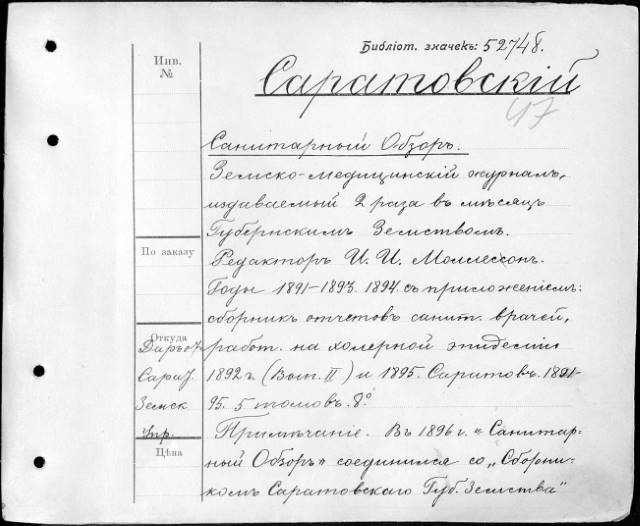 Библіот. значекъ: 52748.
Инв.
№
Саратовскій
47
Санитарный Обзоръ.
Земско-медицинскій журналъ,
издаваемый 2 раза въ мѣсяцъ
Губернскимъ Земствомъ.
По заказу
Редакторъ И. И. Моллессон.
Годы 1891–1893. 1894. съ приложеніемъ:
сборникъ отчетовъ санит. врачей,
Откуда
Даръ от
работ. на холерной эпидеміи
Сарат.
1892 г. (Вып. II) и 1895. Саратовъ. 1891-
Земск
95. 5 томовъ. 8º
Упр.
Примѣчаніе. Въ 1896 г. „Санитар-
Цѣна
ный Обзоръ" соединился со „Сборни-
комъ Саратовскаго Губ. Земства"